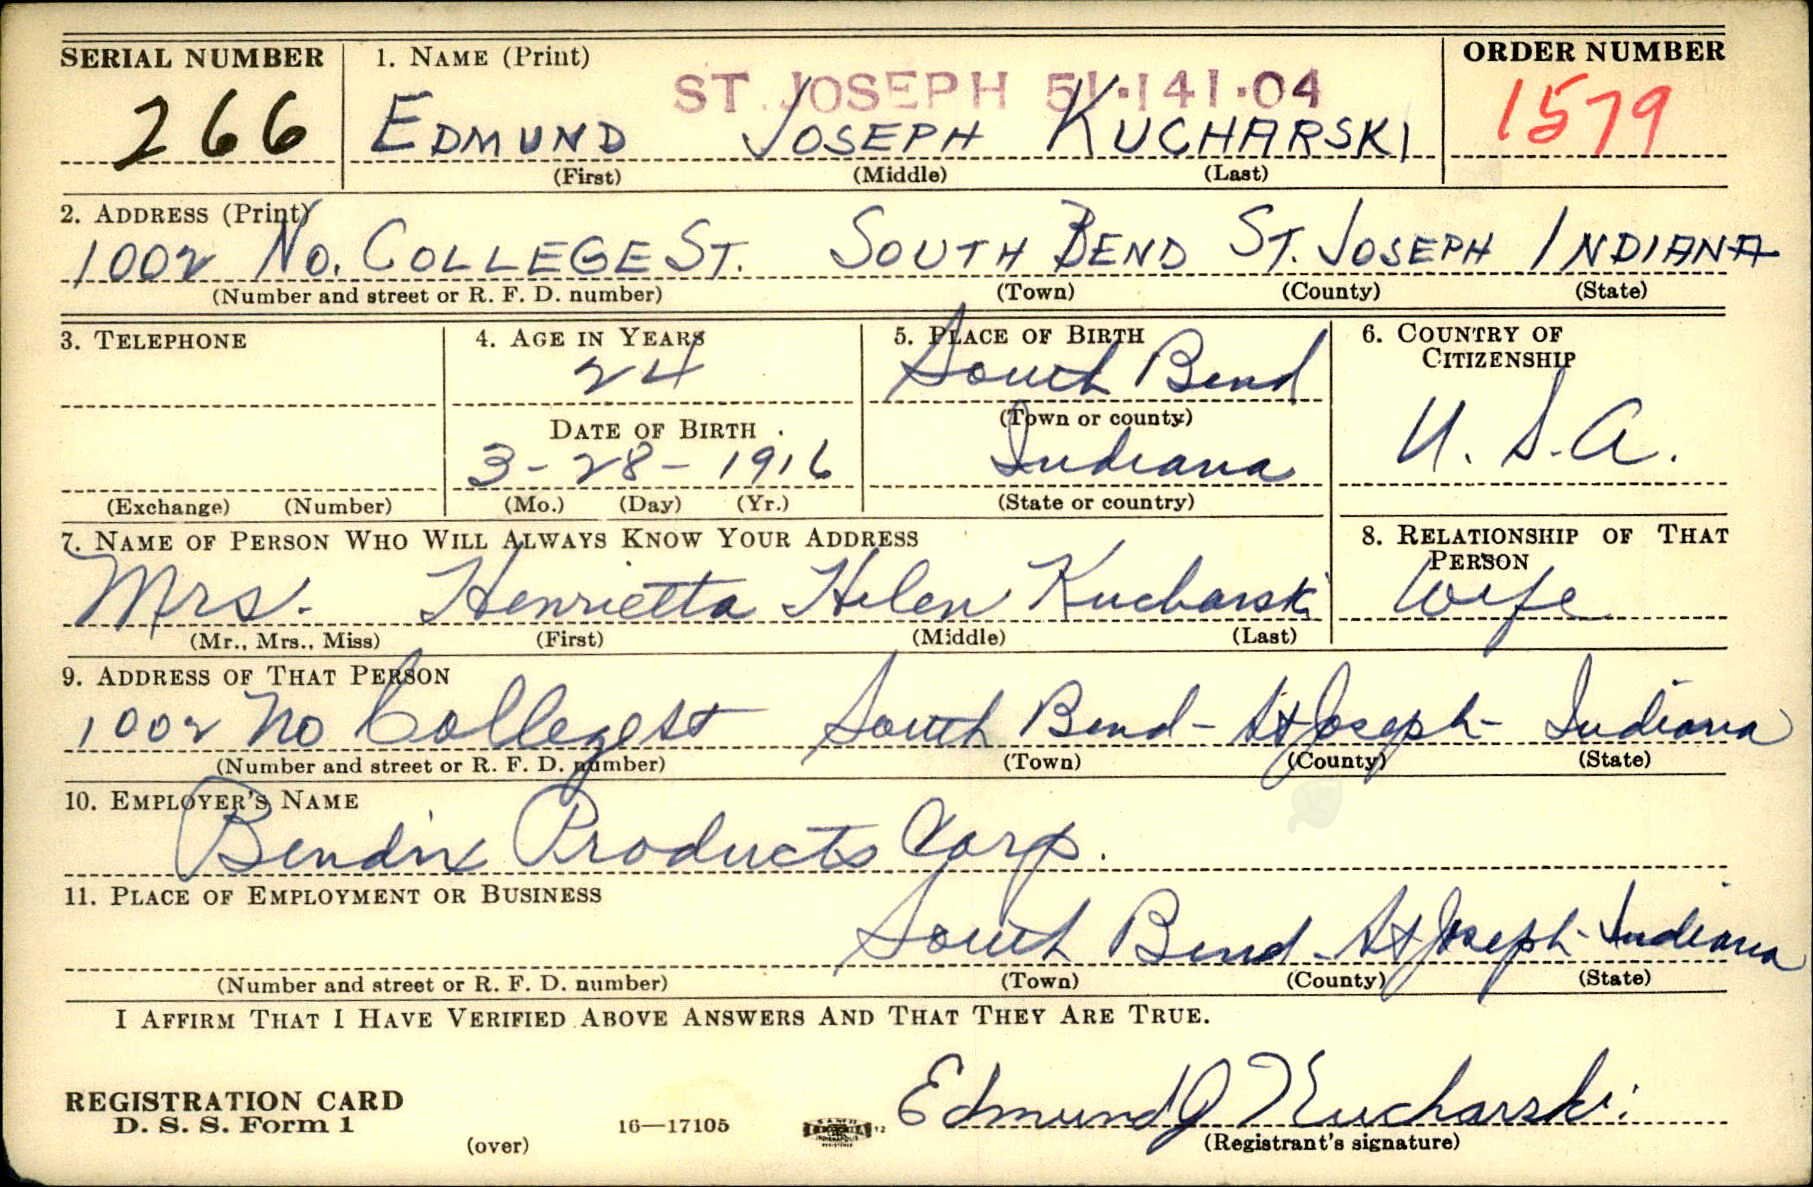 SERIAL NUMBER 1. NAME (Print) ORDER NUMBER
ST. JOSEPH 51·141·04
266 EDMUND JOSEPH KUCHARSKI 1579
(First) (Middle) (Last)
2. ADDRESS (Print)
1002 NO. COLLEGE ST. SOUTH BEND ST. JOSEPH INDIANA
(Number and street or R. F. D. number) (Town) (County) (State)
3. TELEPHONE 4. AGE IN YEARS 5. PLACE OF BIRTH 6. COUNTRY OF
CITIZENSHIP
24 South Bend
(Town or county)
DATE OF BIRTH U. S. A.
3-28-1916 Indiana
(Exchange) (Number) (Mo.) (Day) (Yr.) (State or country)
7. NAME OF PERSON WHO WILL ALWAYS KNOW YOUR ADDRESS 8. RELATIONSHIP OF THAT
PERSON
Mrs. Henrietta Helen Kucharski Wife
(Mr., Mrs., Miss) (First) (Middle) (Last)
9. ADDRESS OF THAT PERSON
1002 No College st South Bend - St Joseph - Indiana
(Number and street or R. F. D. number) (Town) (County) (State)
10. EMPLOYER'S NAME
Bendix Products Corp.
11. PLACE OF EMPLOYMENT OR BUSINESS
South Bend - St Joseph - Indiana
(Number and street or R. F. D. number) (Town) (County) (State)
I AFFIRM THAT I HAVE VERIFIED ABOVE ANSWERS AND THAT THEY ARE TRUE.
REGISTRATION CARD
D. S. S. Form 1 16—17105 Edmund J Kucharski
(over) (Registrant's signature)